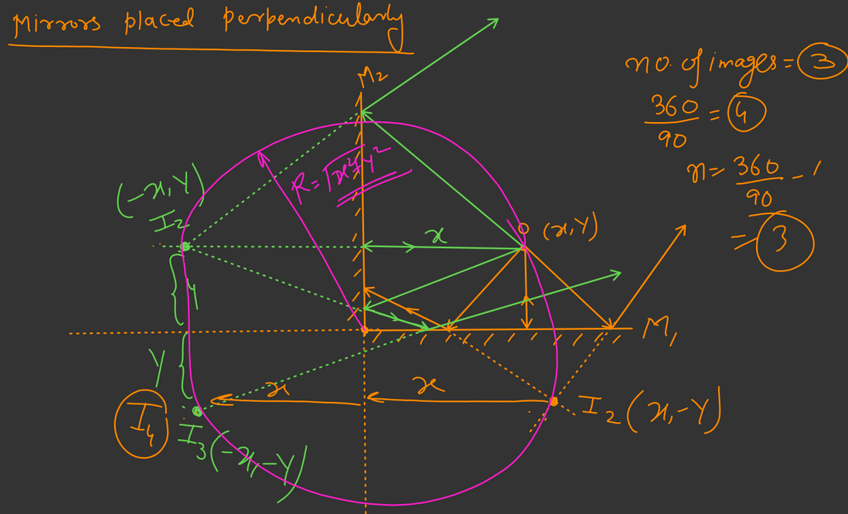 Mirrors placed perpendicularly
no. of images = 3
360
90
= 4
n = 360
90
- 1
= 3
M2
R = √x²+y²
(-x, Y)
I2
x
O (x, Y)
Y
M1
Y
x
x
I2 (x, -Y)
I4
I3 (-x, -Y)